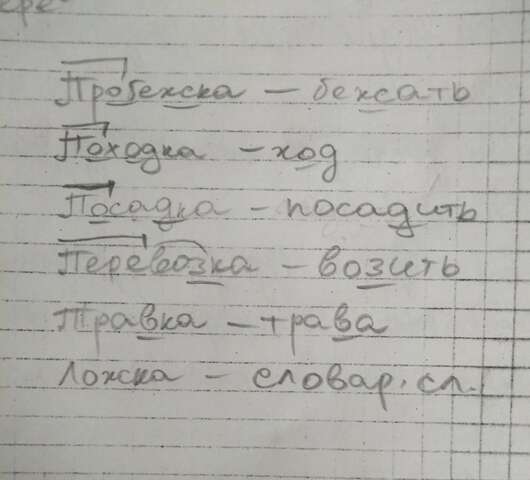 ере
Пробежка – бежать
Походка – ход
Посадка – посадить
Перевозка – возить
Травка – трава
Ложка – словар. сл.